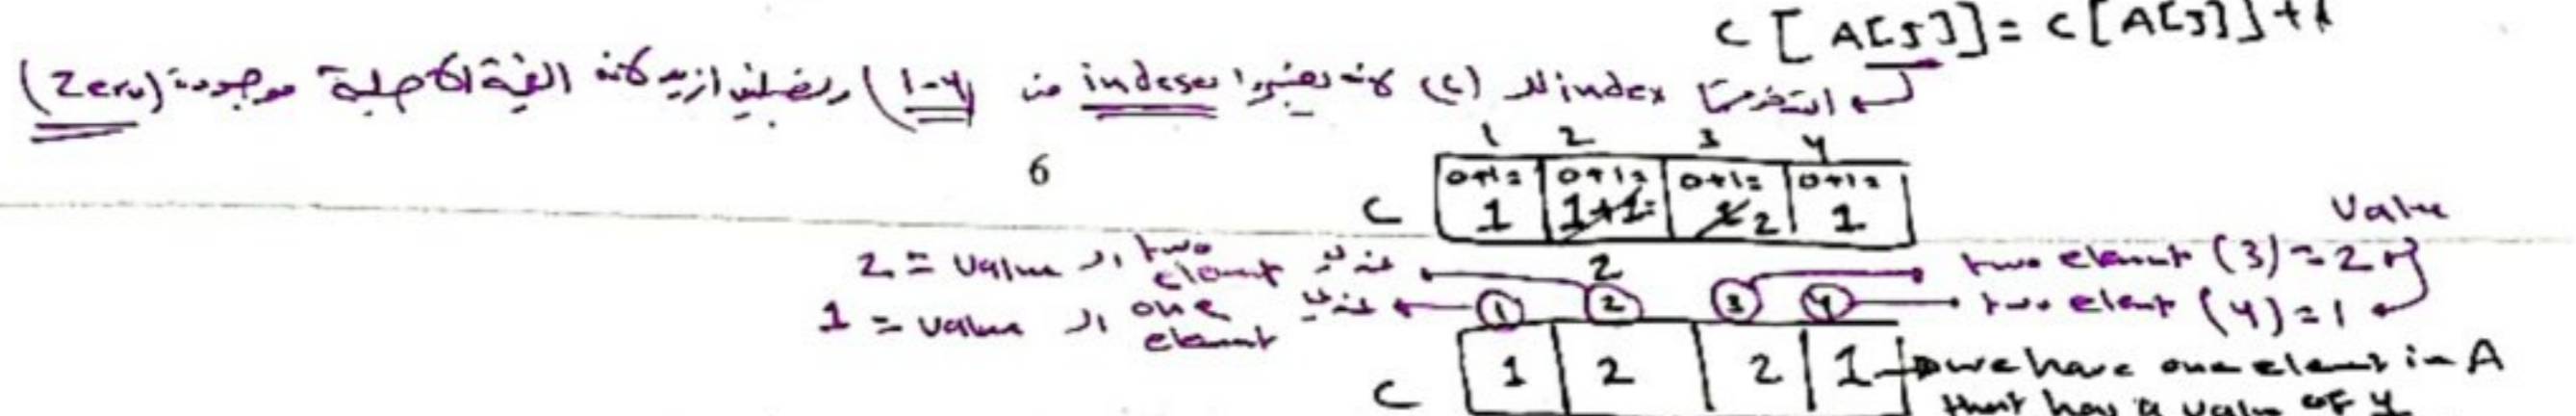 C [A[J]] = C[A[J]] + 1
استخدمنا index للـ (C) لأنه يعتبروا indeses من (1-4) ويضلني ازيد لأنه القيمة الأصلية موجودة (Zero)
6
1 2 3 4
C 0+1= 1 0+1= 1+1= 0+1= 1 2 0+1= 1
2
Value
عندي two element الـ value = 2
two element (3) = 2
1 2 3 4
عندي one element الـ value = 1
two elemt (4) = 1
C 1 2 2 1 we have one element in A
that has a value of 4